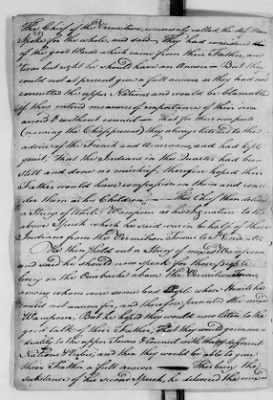 The Chief of the Vermilion, commonly called the
Spoke for the whole, and said They had considered
of the good Words which came from their Father, and
it was but right he should have an Answer — But they
could not at present give a full answer as they had not
consulted the upper Nations and would be blameable
if they entered measures of importance of their own
accord & without council — That for their own part
(naming the Chippewas) They always listened to the
advice of the French and Americans, and had kept
quiet, that the Indians in this Quarter had been
still and done no mischief, therefore hoped their
Father would have compassion on them and consi-
der them as his Children. — This Chief then deliver'd
a String of White Wampum as his Signature to the
above Speech which he said was in behalf of those
Indians from the Vermilion Town to
He then held out a String of mixed Wampum
and said he should now speak for those
living on the Ouabache above the Vermilion Towns,
among whom were some bad People whose Hearts he
could not answer for, and therefore presented the mixed
Wampum, But he hoped they would now listen to the
good talk of their Father, That they would go immediately
to the upper Towns & Council with the different
Nations & Tribes, and then they would be able to give
their Father a full answer — This being the
substance of his second Speech, he delivered the mixed